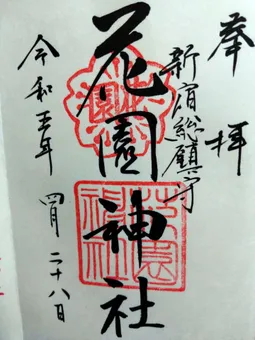 奉拝
新宿総鎮守
花園神社
令和五年
四月二十八日